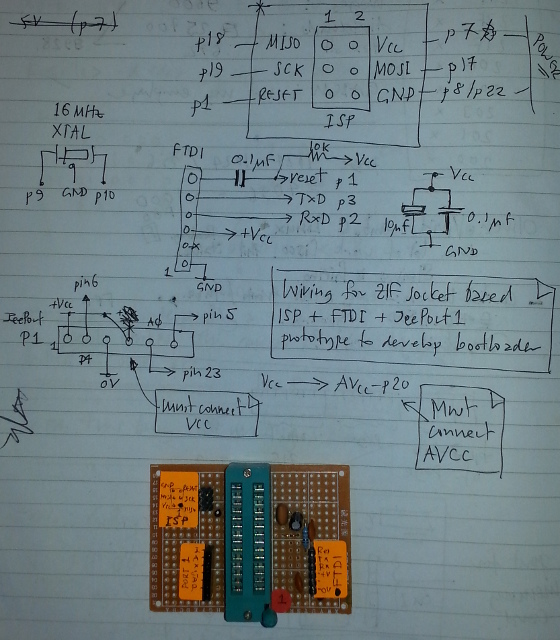 5V (p7)
1 2
p18 MISO Vcc p7
p19 SCK MOSI p17
p1 RESET GND p8/p22
ISP
POWER
16 MHz
XTAL
p9 GND p10
FTDI
0.1µF
10K
Vcc
reset p1
TxD p3
RxD p2
+Vcc
x
1
GND
Vcc
10µF
0.1µF
GND
pin6
+Vcc
JeePort
P1
1
A0
pin5
0V
pin 23
Must connect
VCC
Wiring for ZIF socket based
ISP + FTDI + JeePort1
prototype to develop bootloader
Vcc → AVcc - p20
Must
connect
AVCC
ISP
PORT 1
FTDI
1